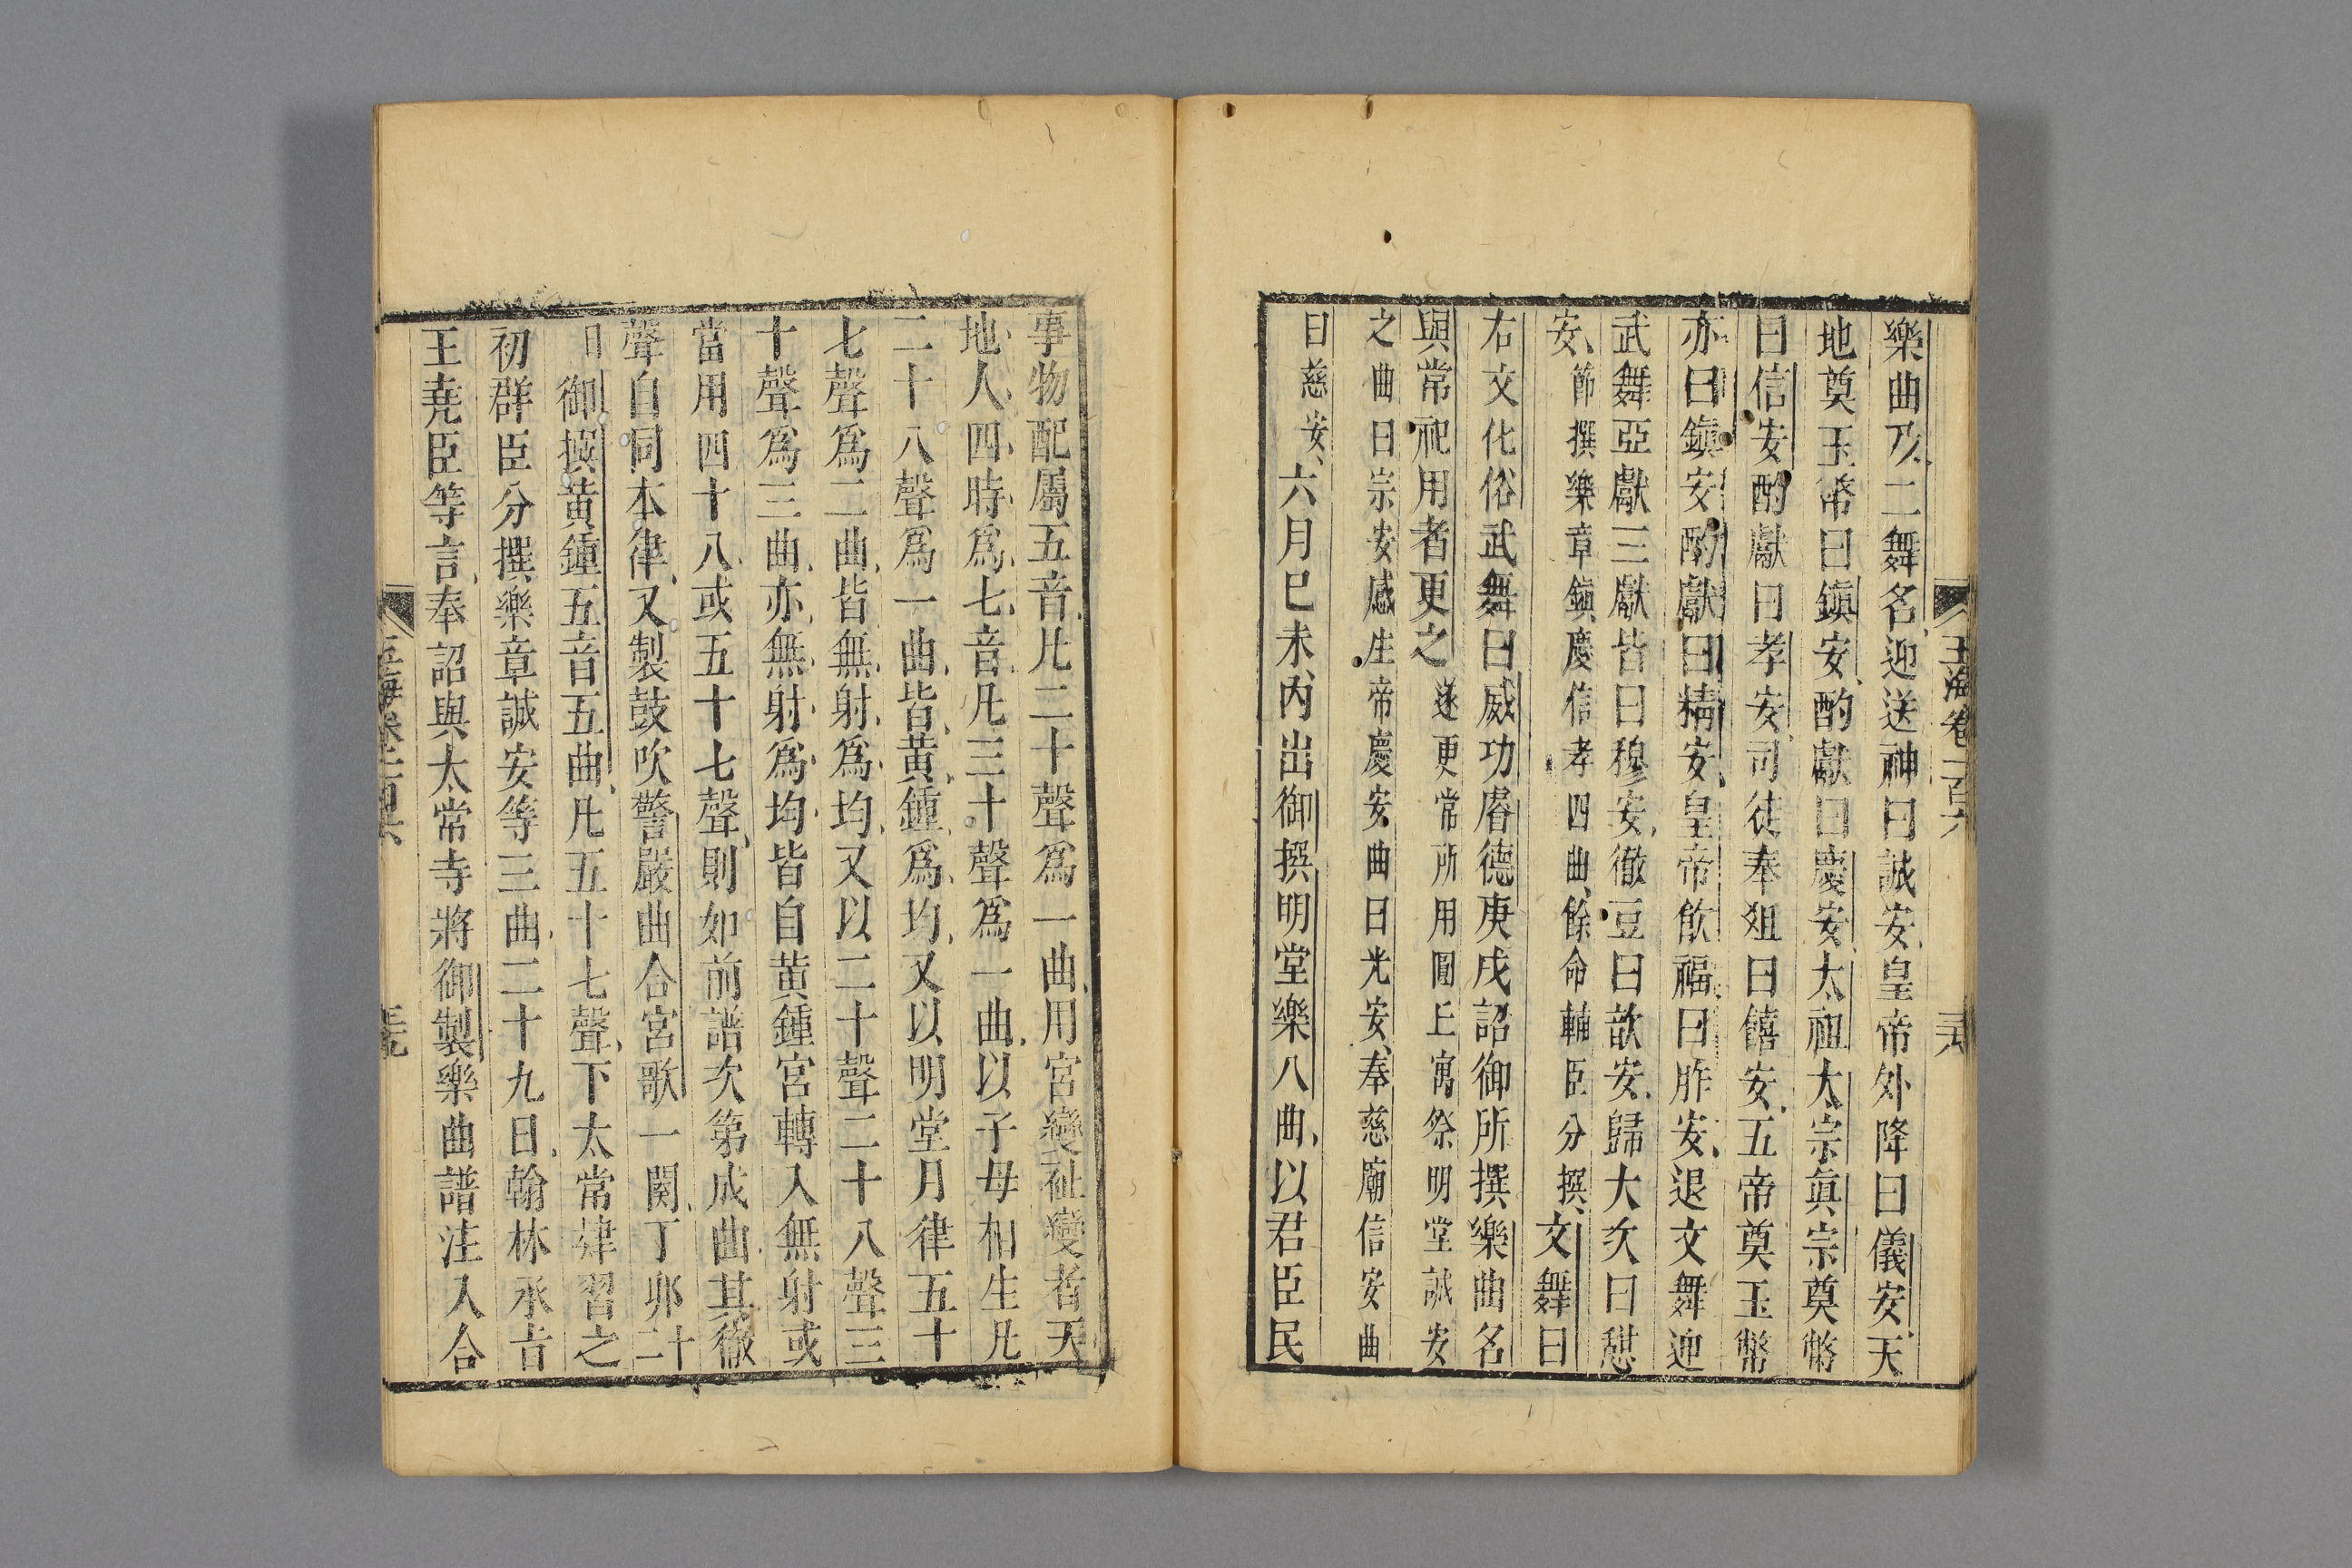 樂曲及二舞名迎送神曰誠安皇帝外降曰儀安天
地奠玉幣曰鎭安酌獻曰慶安太祖太宗眞宗奠幣
曰信安酌獻曰孝安司徒奉俎曰饎安五帝奠玉幣
亦曰鎭安酌獻曰精安皇帝飲福曰胙安退文舞迎
武舞亞獻三獻皆曰穆安徹豆曰歆安歸大次曰憇
安節撰樂章鎭慶信孝四曲餘命輔臣分撰文舞曰
右文化俗武舞曰威功睿德庚戌詔御所撰樂曲名
與常祀用者更之遂更常所用圜丘寓祭明堂誠安
之曲曰宗安感生帝慶安曲曰光安奉慈廟信安曲
曰慈安六月巳未內出御撰明堂樂八曲以君臣民
玉海卷一百六
事物配屬五音凡二十聲爲一曲用宮變祉變者天
地人四時爲七音凡三十聲爲一曲以子母相生凡
二十八聲爲一曲皆黃鍾爲均又以明堂月律五十
七聲爲二曲皆無射爲均又以二十聲二十八聲三
十聲爲三曲亦無射爲均皆自黃鍾宮轉入無射或
當用四十八或五十七聲則如前譜次第成曲其徹
聲自同本律又製鼓吹警嚴曲合宮歌一闋丁卯二十
日御撰黃鍾五音五曲凡五十七聲下太常肄習之
初群臣分撰樂章誠安等三曲二十九日翰林承旨
王堯臣等言奉詔與太常寺將御製樂曲譜注入合